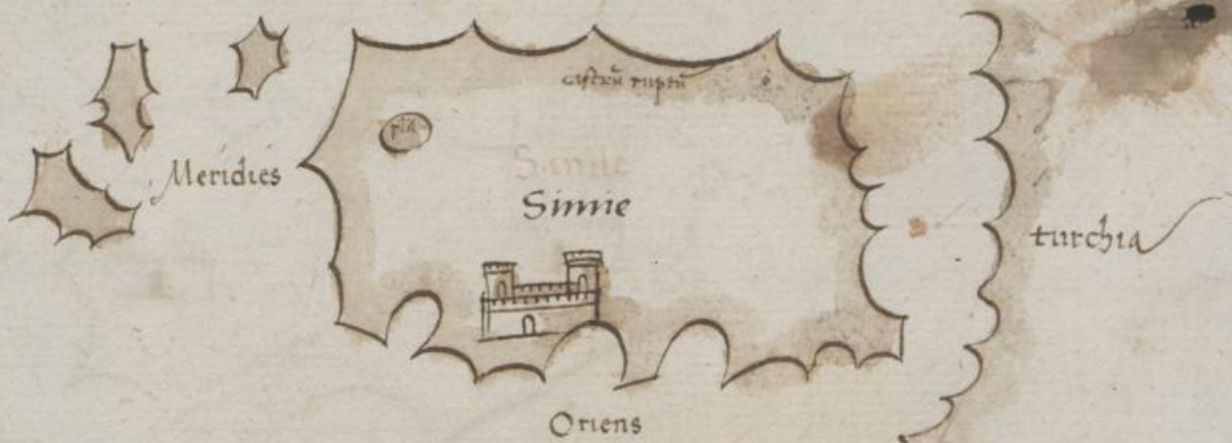 castrũ ruptũ
Meridies
Simie
turchia
Oriens